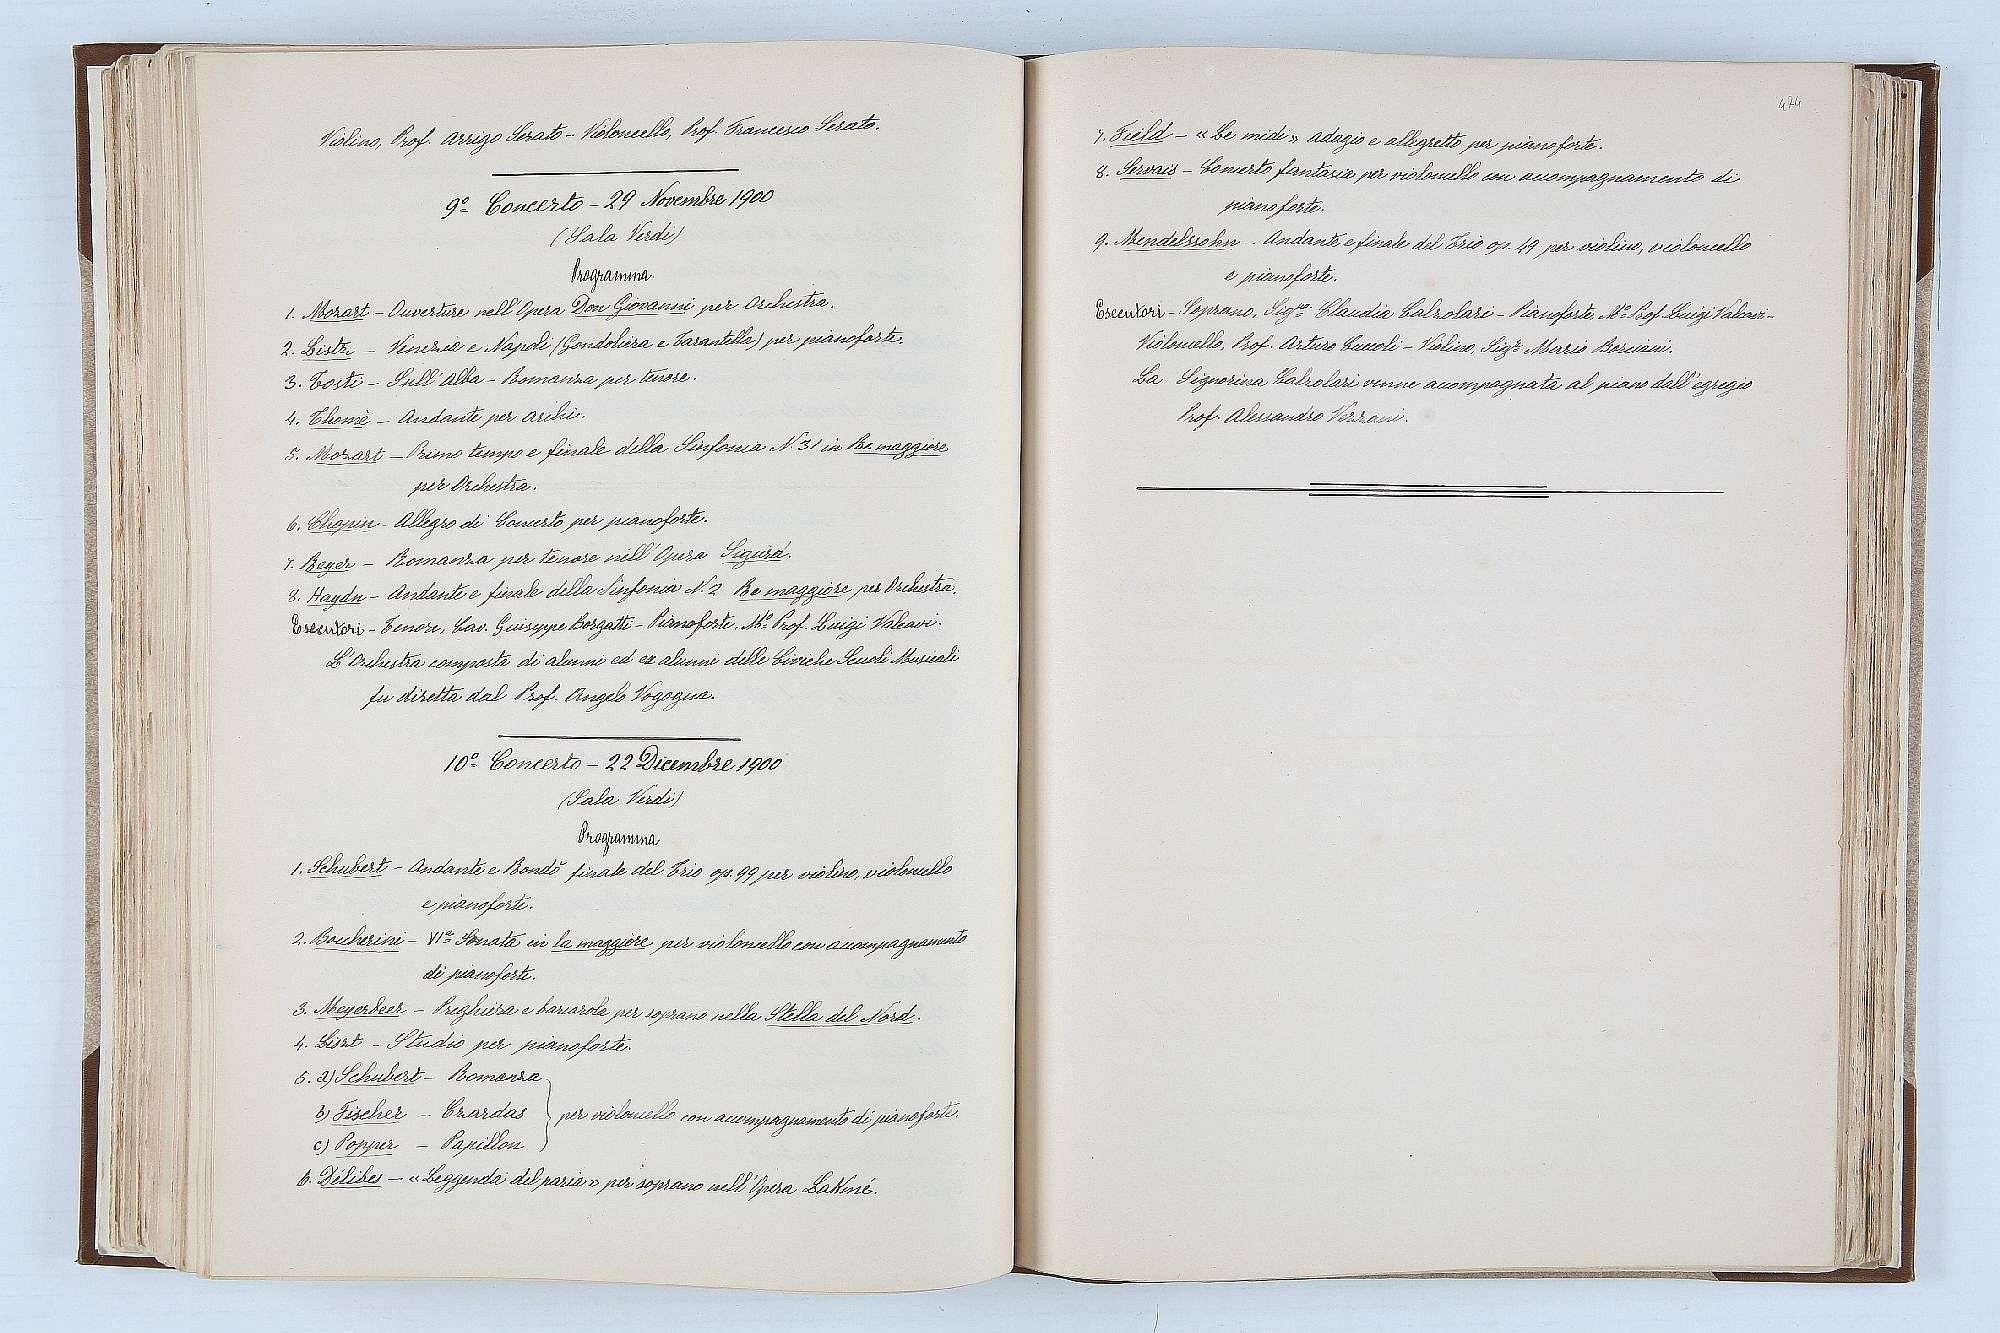 Violino, Prof. Arrigo Serato – Violoncello, Prof. Francesco Serato.
9º Concerto – 29 Novembre 1900
(Sala Verdi)
Programma
1. Mozart – Ouverture nell'Opera Don Giovanni per Orchestra.
2. Listz – Venezia e Napoli (Gondoliera e Tarantella) per pianoforte.
3. Tosti – Sull'Alba – Romanza per tenore.
4. Thomè – Andante per archi.
5. Mozart – Primo tempo e finale della Sinfonia N. 31 in Re maggiore
per Orchestra.
6. Chopin – Allegro di Concerto per pianoforte.
7. Reyer – Romanza per tenore nell'Opera Sigurd.
8. Haydn – Andante e finale della Sinfonia N. 2 Re maggiore per Orchestra.
Esecutori – Tenore, Cav. Guiseppe Borgatti – Pianoforte, Mº Prof. Luigi
L'Orchestra composta di alunni ed ex alunni delle Civiche Scuole Musicali
fu diretta dal Prof. Angelo Vogogna.
10º Concerto – 22 Dicembre 1900
(Sala Verdi)
Programma
1. Schubert – Andante e Rondò finale del Trio op. 99 per violino, violoncello
e pianoforte.
2. Boccherini – VIª Sonata in la maggiore per violoncello con accompagnamento
di pianoforte.
3. Meyerbeer – Preghiera e barcarola per soprano nella Stella del Nord.
4. Liszt – Studio per pianoforte.
5. a) Schubert – Romanza
b) Fischer – Czardas
per violoncello con accompagnamento di pianoforte.
c) Popper – Papillon
6. Délibes – «Leggenda del paria» per soprano nell'Opera Lakmé.
474
7. Field – «Le midi» adagio e allegretto per pianoforte.
8. Servais – Concerto fantasia per violoncello con accompagnamento di
pianoforte.
9. Mendelssohn – Andante e finale del Trio op. 49 per violino, violoncello
e pianoforte.
Esecutori – Soprano, Sigª Claudia Calzolari – Pianoforte, Mº Prof. Luigi
Violoncello, Prof. Arturo Cuccoli – Violino, Sigr Mario
La Signorina Calzolari venne accompagnata al piano dall'egregio
Prof. Alessandro